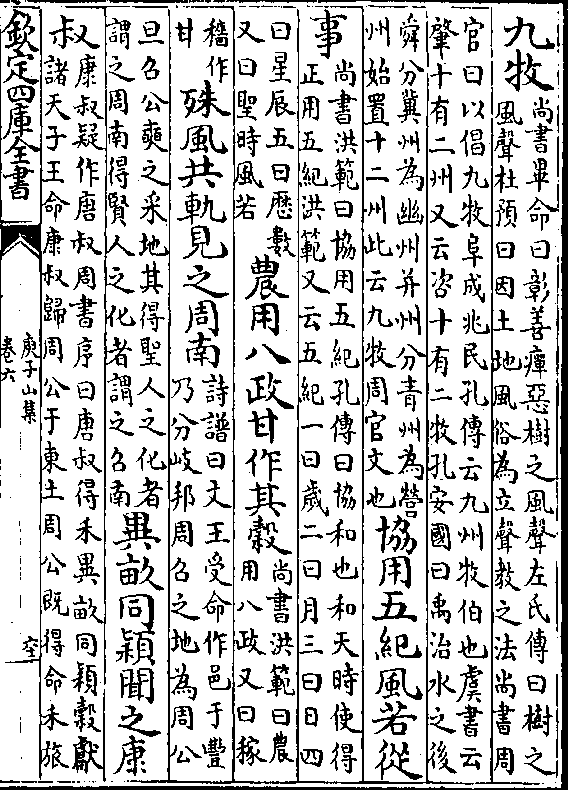 九牧尚書畢命曰彰善癉惡樹之風聲左氏傳曰樹之
風聲杜預曰因土地風俗為立聲教之法尚書周
官曰以倡九牧阜成兆民孔傳云九州牧伯也虞書云
肇十有二州又云咨十有二牧孔安國曰禹治水之後
舜分冀州為幽州并州分青州為營
州始置十二州此云九牧周官文也
協用五紀風若從
事尚書洪範曰協用五紀孔傳曰協和也和天時使得
正用五紀洪範又云五紀一曰歲二曰月三曰日四
曰星辰五曰歷數
又曰聖時風若
農用八政甘作其穀尚書洪範曰農
用八政又曰稼
穡作
甘
殊風共軌見之周南詩譜曰文王受命作邑于豐
乃分岐邦周召之地為周公
旦召公奭之采地其得聖人之化者
謂之周南得賢人之化者謂之召南
異畝同穎聞之康
叔康叔疑作唐叔周書序曰唐叔得禾異畝同穎穀獻
諸天子王命康叔歸周公于東土周公既得命禾旅
欽定四庫全書
庾子山集
卷六